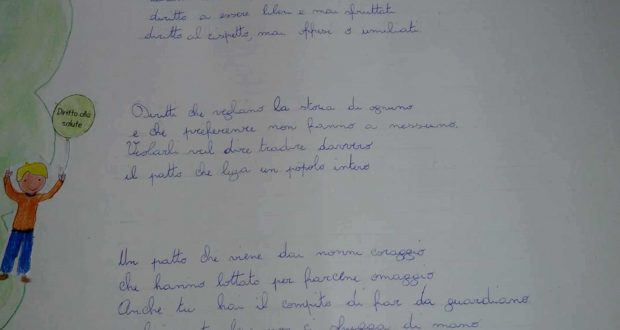 diritto a essere liberi e mai sfruttati
diritto al rispetto, mai offesi o umiliati
Diritto alla
salute
Diritti che vegliano la storia di ognuno
e che preferenze non fanno a nessuno.
Violarli vul dire tradire davvero
il patto che lega un popolo intero
Un patto che viene dai nonni coraggio
che hanno lottato per farcene omaggio
Anche tu hai il compito di far da guardiano
sfugga di mano